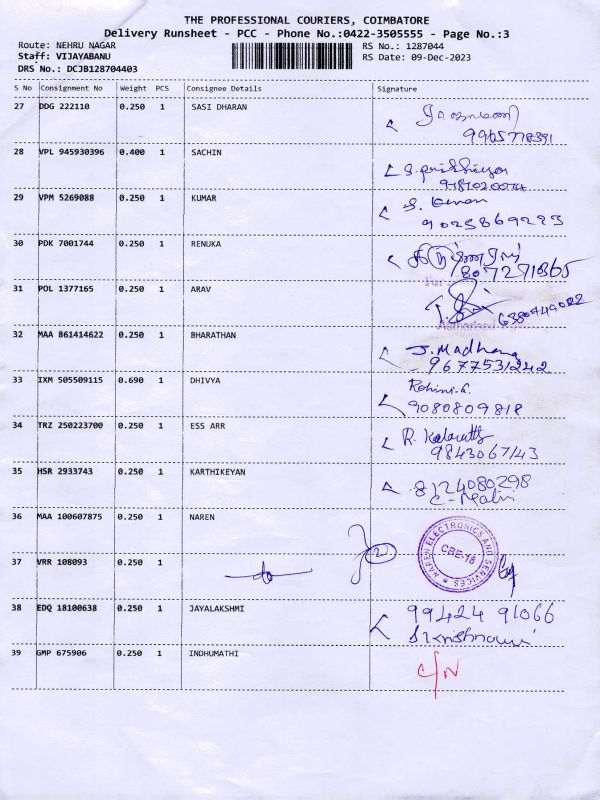 THE PROFESSIONAL COURIERS, COIMBATORE
Delivery Runsheet - PCC - Phone No.:0422-3505555 - Page No.:3
Route: NEHRU NAGAR
RS No.: 1287044
Staff: VIJAYABANU
RS Date: 09-Dec-2023
DRS No.: DCJB128704403
S No Consignment No Weight PCS Consignee Details Signature
27 DDG 222110 0.250 1 SASI DHARAN
9965778391
28 VPL 945930396 0.400 1 SACHIN
29 VPM 5269088 0.250 1 KUMAR
9025869223
30 PDK 7001744 0.250 1 RENUKA
8072291865
31 POL 1377165 0.250 1 ARAV
6380449022
32 MAA 861414622 0.250 1 BHARATHAN
J. Madhana
9677531242
33 IXM 505509115 0.690 1 DHIVYA
Rohini.
9080809818
34 TRZ 250223700 0.250 1 ESS ARR
R.
9843067143
35 HSR 2933743 0.250 1 KARTHIKEYAN
8124080298
36 MAA 100607875 0.250 1 NAREN
2
NAREN ELECTRONICS AND SERVICES
CBE-18
37 VRR 108093 0.250 1
38 EDQ 18100638 0.250 1 JAYALAKSHMI
99424 91066
39 GMP 675906 0.250 1 INDHUMATHI
C/N